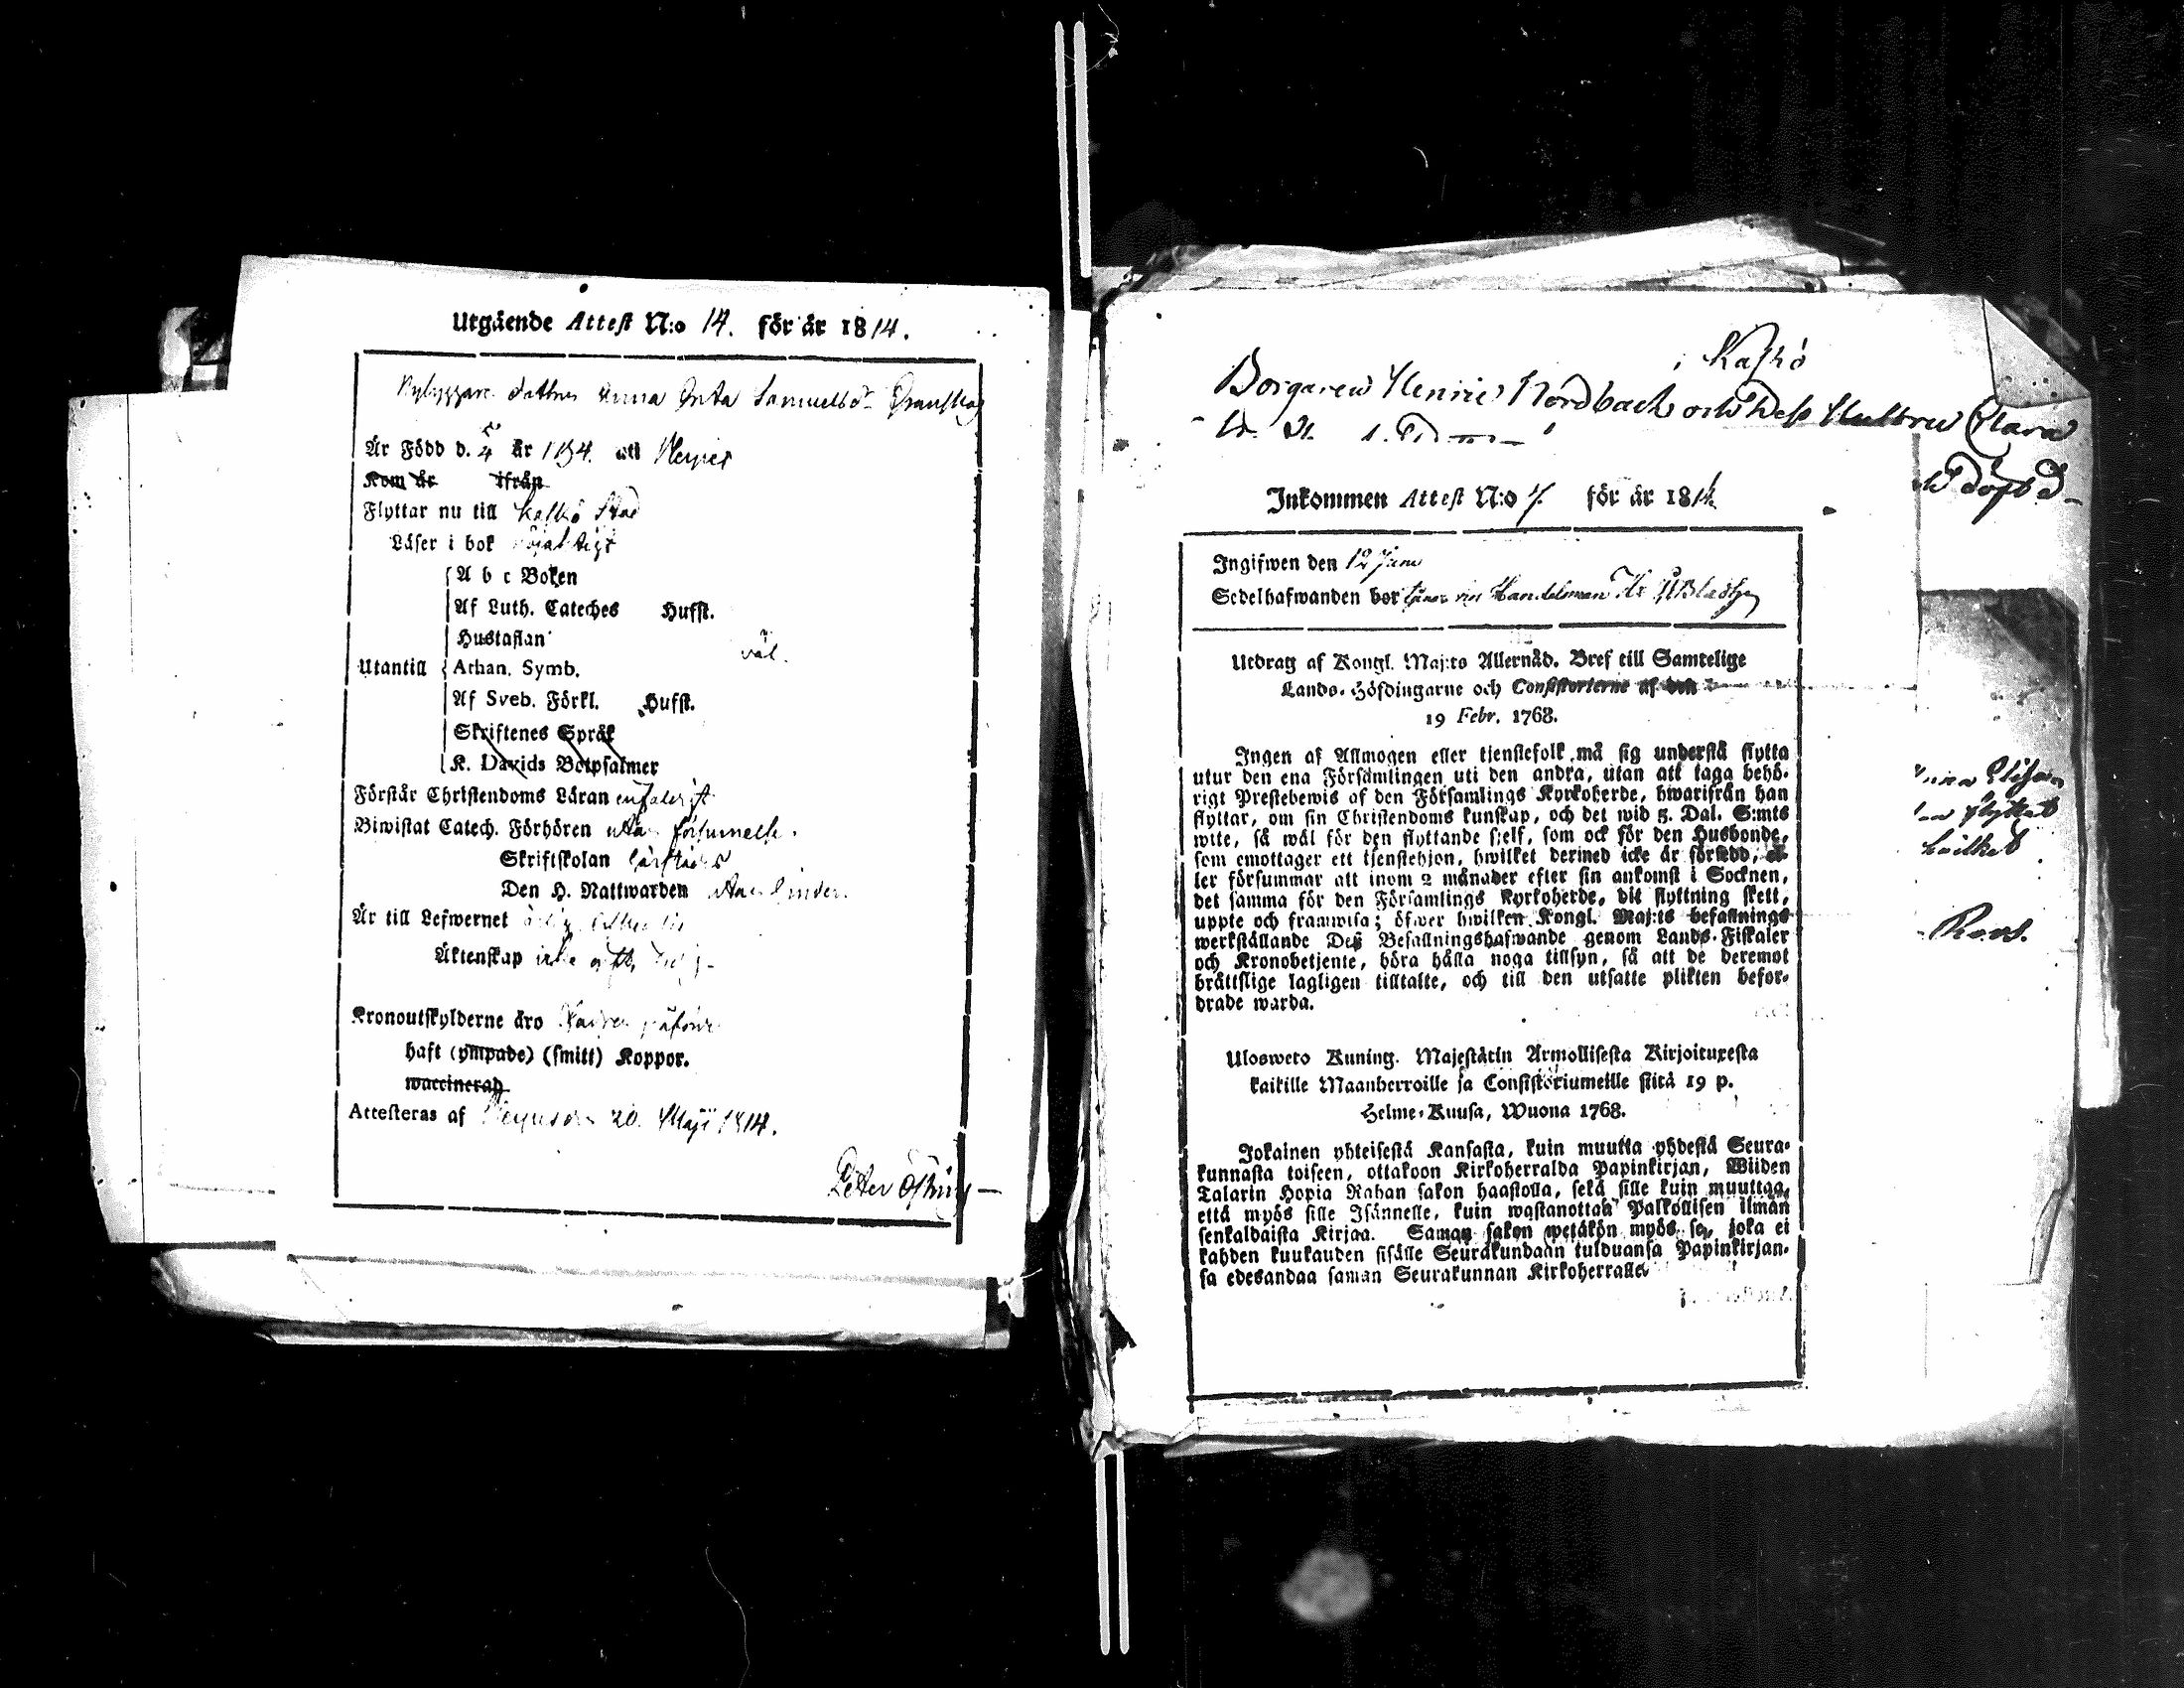 Utgående Attest N:o 14. för år 1814.
Nybyggare dottren Anna Greta Samuelsdr
Är Född d. år att
Kom år ifrån
Flyttar nu till Kaskö Stad
Läser i bok
A b c Boken
Af Luth. Cateches Hufst.
Hustaflan
väl.
Utantill Athan. Symb.
Af Sveb. Förkl. Hufst.
Skriftenes Språk
K. Davids Botpsalmer
Förstår Christendoms Läran enfaldigt
Biwistat Catech. Förhören utan försummelse.
Skriftskolan
Den H. Nattwarden utan hinder.
Är till Lefwernet
Äktenskap icke
Kronoutskylderne äro
haft (ympade) (smitt) Koppor.
waccinerad
Attesteras af 20. Maji 1814.
Peter
i Kaskö
Borgaren Henric Nordback och Dess Hustru Clara
Inkommen Attest N:o 4. för år 1814
Döpt d
Ingifwen den 12 Juni
Sedelhafwanden bor tjenar hos Handelsman
Utdrag af Kongl. Maj:ts Allernåd. Bref till Samtelige
Lands-Höfdingarne och Consistorierne af den
19 Febr. 1768.
Ingen af Allmogen eller tjenstefolk må sig understå flytta
utur den ena Församlingen uti den andra, utan att taga behö-
rigt Prestebewis af den Församlings Kyrkoherde, hwarifrån han
flyttar, om sin Christendoms kunskap, och det wid 5. Dal. S:mts
wite, så wäl för den flyttande sjelf, som ock för den Husbonde,
som emottager ett tjenstehjon, hwilket dermed icke är försedd, el-
ler försummar att inom 2 månader efter sin ankomst i Socknen,
det samma för den Församlings Kyrkoherde, dit flyttning skett,
uppte och framwisa; öfwer hwilken Kongl. Maj:ts befallnings
werkställande Deß Befallningshafwande genom Lands-Fiskaler
och Kronobetjente, böra hålla noga tillsyn, så att de deremot
bråttslige lagligen tilltalte, och till den utsatte plikten befor-
drade warda.
Ulosweto Kuning. Majestätin Armollisesta Kirjoituxesta
kaikille Maanherroille ja Consistoriumeille siitä 19 p.
Helme-Kuusa, Wuona 1768.
Jokainen yhteisestä Kansasta, kuin muutta yhdestä Seura-
kunnasta toiseen, ottakoon Kirkoherralda Papinkirjan, Wiiden
Talarin Hopia Rahan sakon haastolla, sekä sille kuin muuttaa,
että myös sille Isännelle, kuin wastanottaa Palkollisen ilman
senkaldaista Kirjaa. Saman sakon wetäkön myös se, joka ei
kahden kuukauden sisälle Seurakundaan tulduansa Papinkirjan-
sa edesandaa saman Seurakunnan Kirkoherralle.